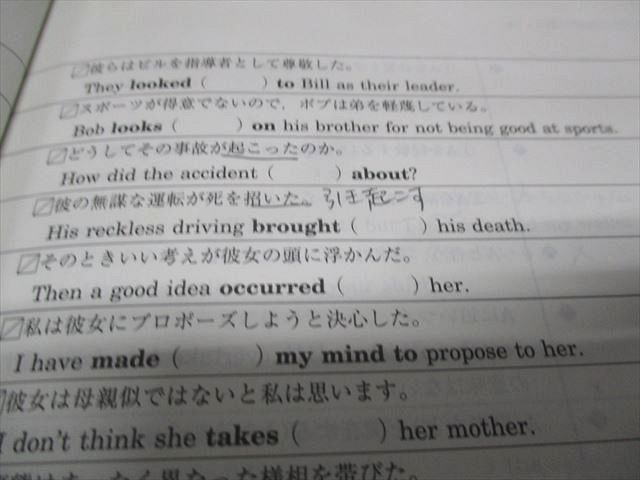 彼らはビルを指導者として尊敬した。
They looked ( ) to Bill as their leader.
スポーツが得意でないので，ボブは弟を軽蔑している。
Bob looks ( ) on his brother for not being good at sports.
どうしてその事故が起こったのか。
How did the accident ( ) about?
彼の無謀な運転が死を招いた。 引き起こす
His reckless driving brought ( ) his death.
そのときいい考えが彼女の頭に浮かんだ。
Then a good idea occurred ( ) her.
私は彼女にプロポーズしようと決心した。
I have made ( ) my mind to propose to her.
彼女は母親似ではないと私は思います。
I don't think she takes ( ) her mother.
なった様相を帯びた。